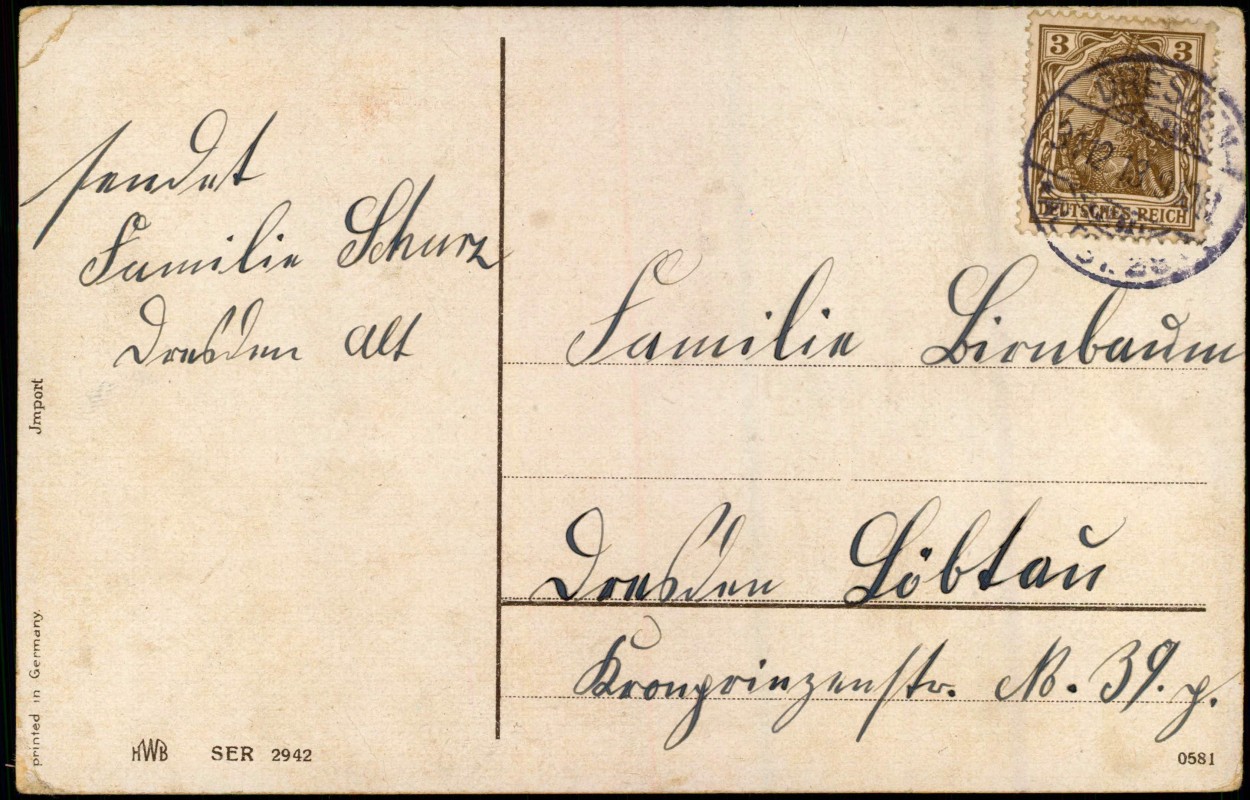 sendet
Familie Schurz
Dresden Alt
Jmport
printed in Germany.
HWB SER 2942
3 3
DRESDEN
31.12.13
DEUTSCHES REICH
Familie Birnbaum
Dresden Löbtau
Kronprinzenstr. No. 39. p.
0581